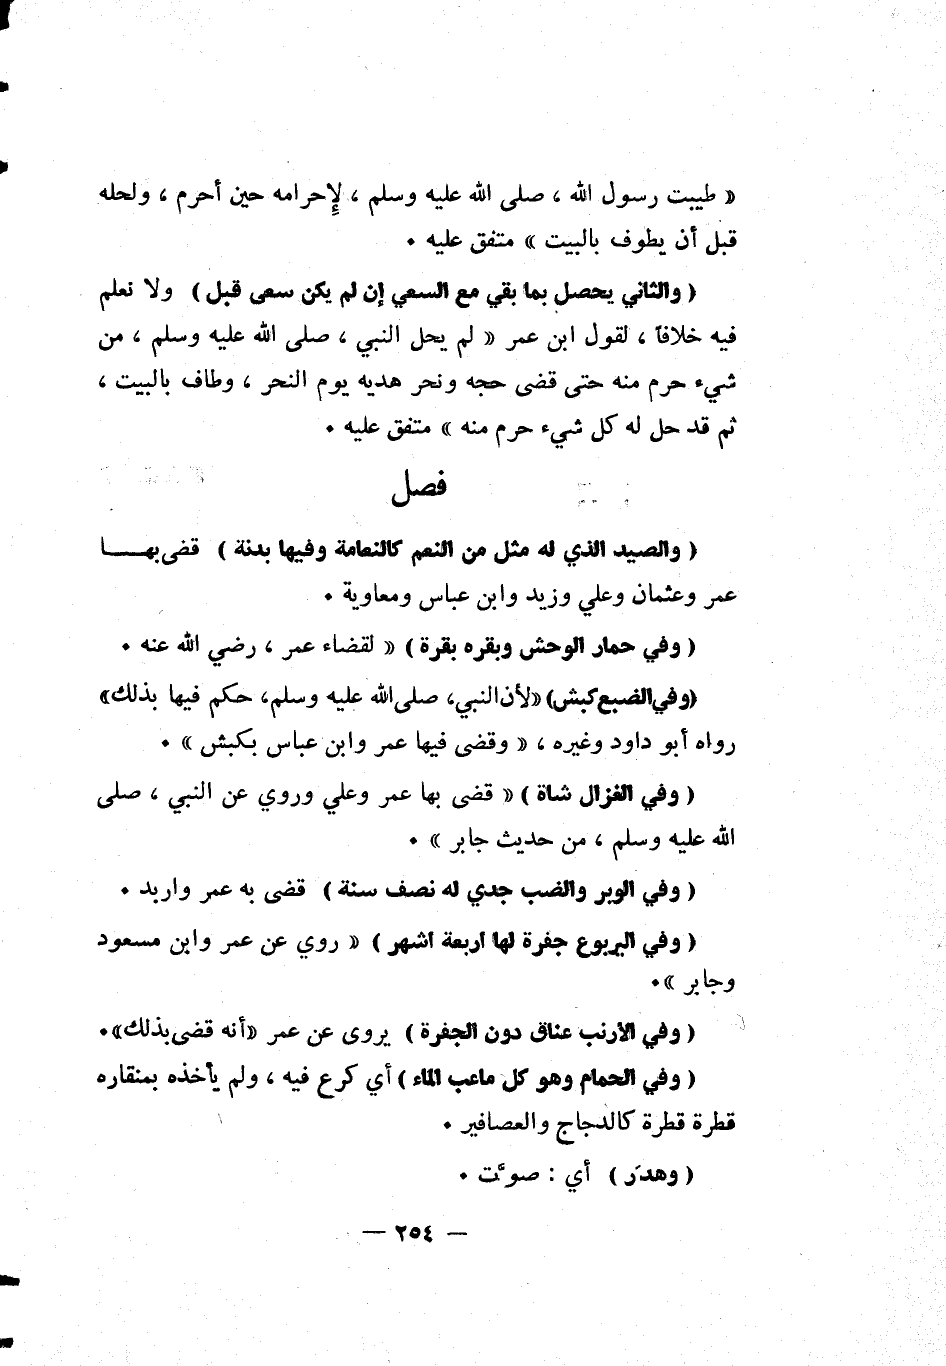 « طيبت رسول الله ، صلى الله عليه وسلم ، لإحرامه حين أحرم ، ولحله
قبل أن يطوف بالبيت » متفق عليه .
( والثاني يحصل بما بقي مع السعي إن لم يكن سعى قبل ) ولا نعلم
فيه خلافاً ، لقول ابن عمر « لم يحل النبي ، صلى الله عليه وسلم ، من
شيء حرم منه حتى قضى حجه ونحر هديه يوم النحر ، وطاف بالبيت ،
ثم قد حل له كل شيء حرم منه » متفق عليه .
فصل
( والصيد الذي له مثل من النعم كالنعامة وفيها بدنة ) قضى بهـــا
عمر وعثمان وعلي وزيد وابن عباس ومعاوية .
( وفي حمار الوحش وبقره بقرة ) « لقضاء عمر ، رضي الله عنه .
(وفي الضبع كبش) «لأن النبي، صلى الله عليه وسلم، حكم فيها بذلك»
رواه أبو داود وغيره ، « وقضى فيها عمر وابن عباس بكبش » .
( وفي الغزال شاة ) « قضى بها عمر وعلي وروي عن النبي ، صلى
الله عليه وسلم ، من حديث جابر » .
( وفي الوبر والضب جدي له نصف سنة ) قضى به عمر واربد .
( وفي اليربوع جفرة لها اربعة اشهر ) « روي عن عمر وابن مسعود
وجابر ».
( وفي الأرنب عناق دون الجفرة ) يروى عن عمر «أنه قضى بذلك».
( وفي الحمام وهو كل ماعب الماء ) أي كرع فيه ، ولم يأخذه بمنقاره
قطرة قطرة كالدجاج والعصافير .
( وهدَر ) أي : صوَّت .
— ٢٥٤ —